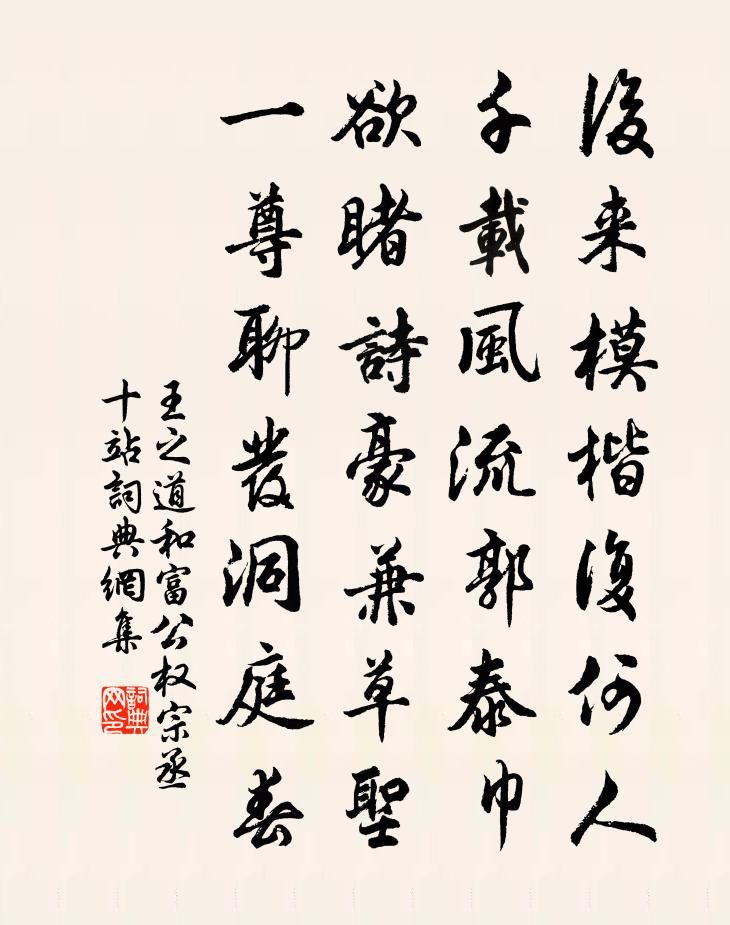 後来模楷復何人
千載風流郭泰巾
欲睹詩豪兼草聖
一尊聊發洞庭春
王之道和富公权宗丞
十站詞典網集
詞典网印